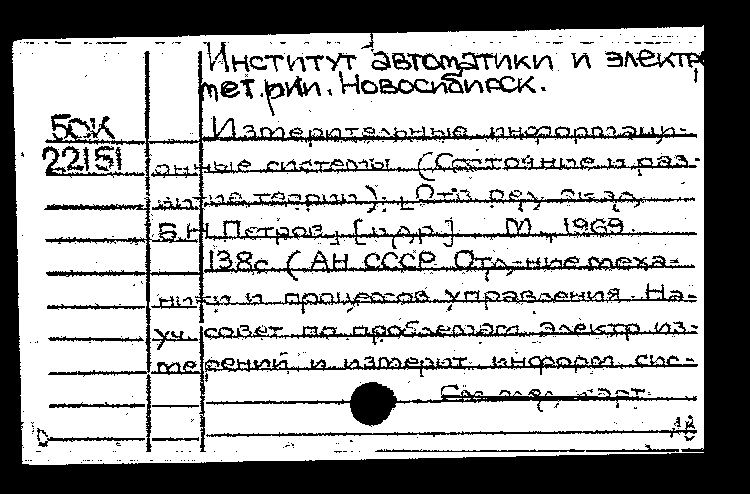 Институт автоматики и электро
метрии. Новосибирск.
БОК
22151
Измерительные информаци-
онные системы (Состояние и раз-
витие теории). [Отв. ред. акад.
Б.Н. Петров] [и др.] М., 1969.
138с (АН СССР. Отд-ние меха-
ники и процессов управления. На-
уч. совет по проблемам электр. из-
мерений и измерит. информ. сис-
См. след. карт.
D
АВ